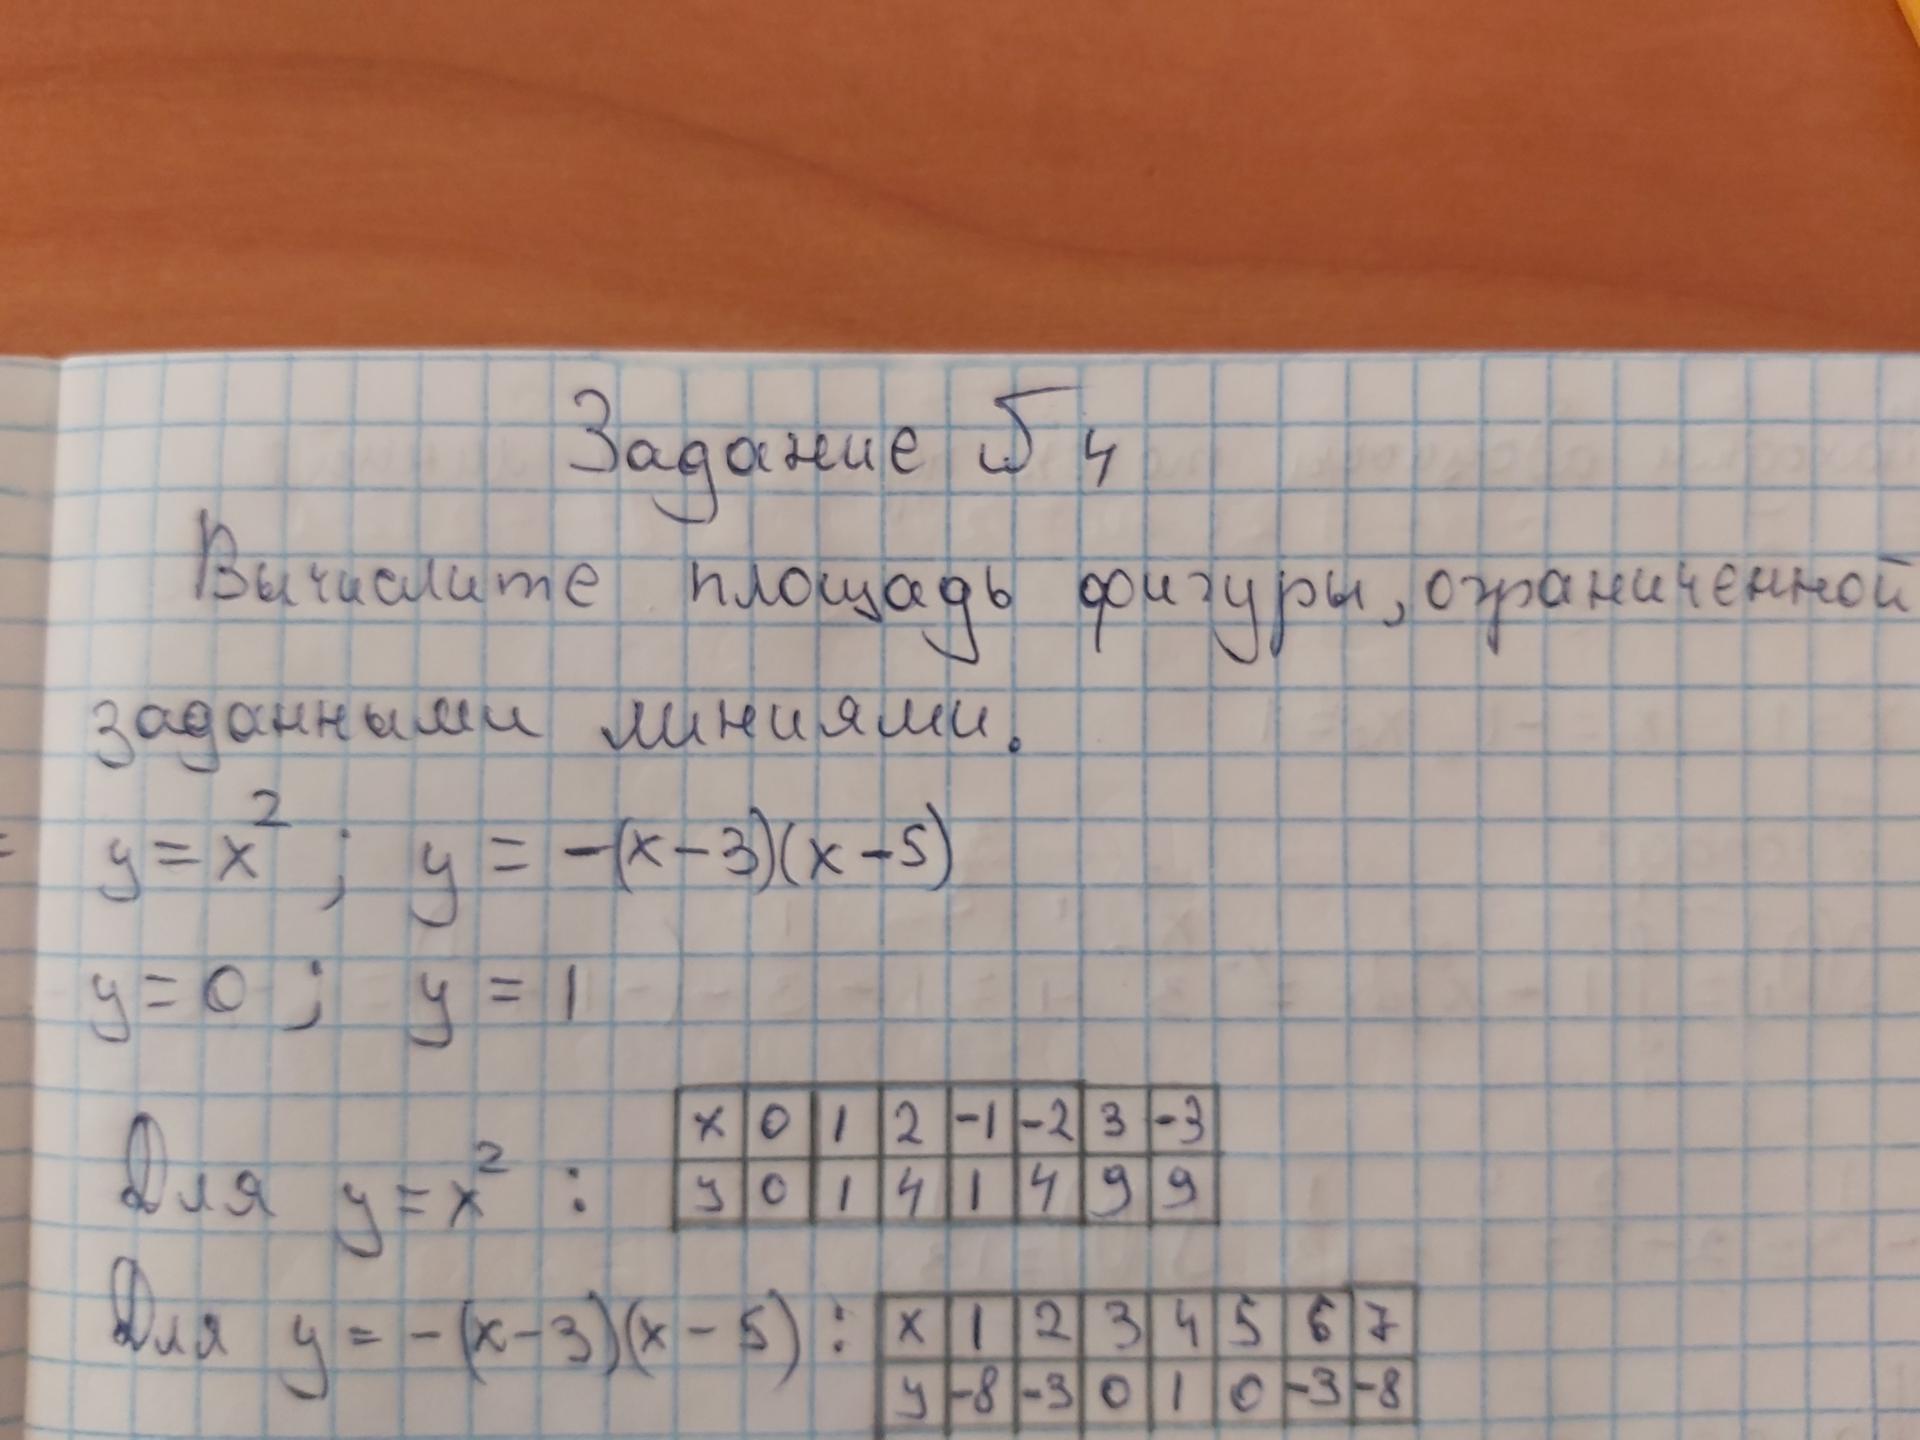 Задание №4
Вычислите площадь фигуры, ограниченной
заданными линиями.
y = x² ; y = -(x-3)(x-5)
y = 0 ; y = 1
Для y = x² :
x 0 1 2 -1 -2 3 -3
y 0 1 4 1 4 9 9
Для y = -(x-3)(x-5) :
x 1 2 3 4 5 6 7
y -8 -3 0 1 0 -3 -8